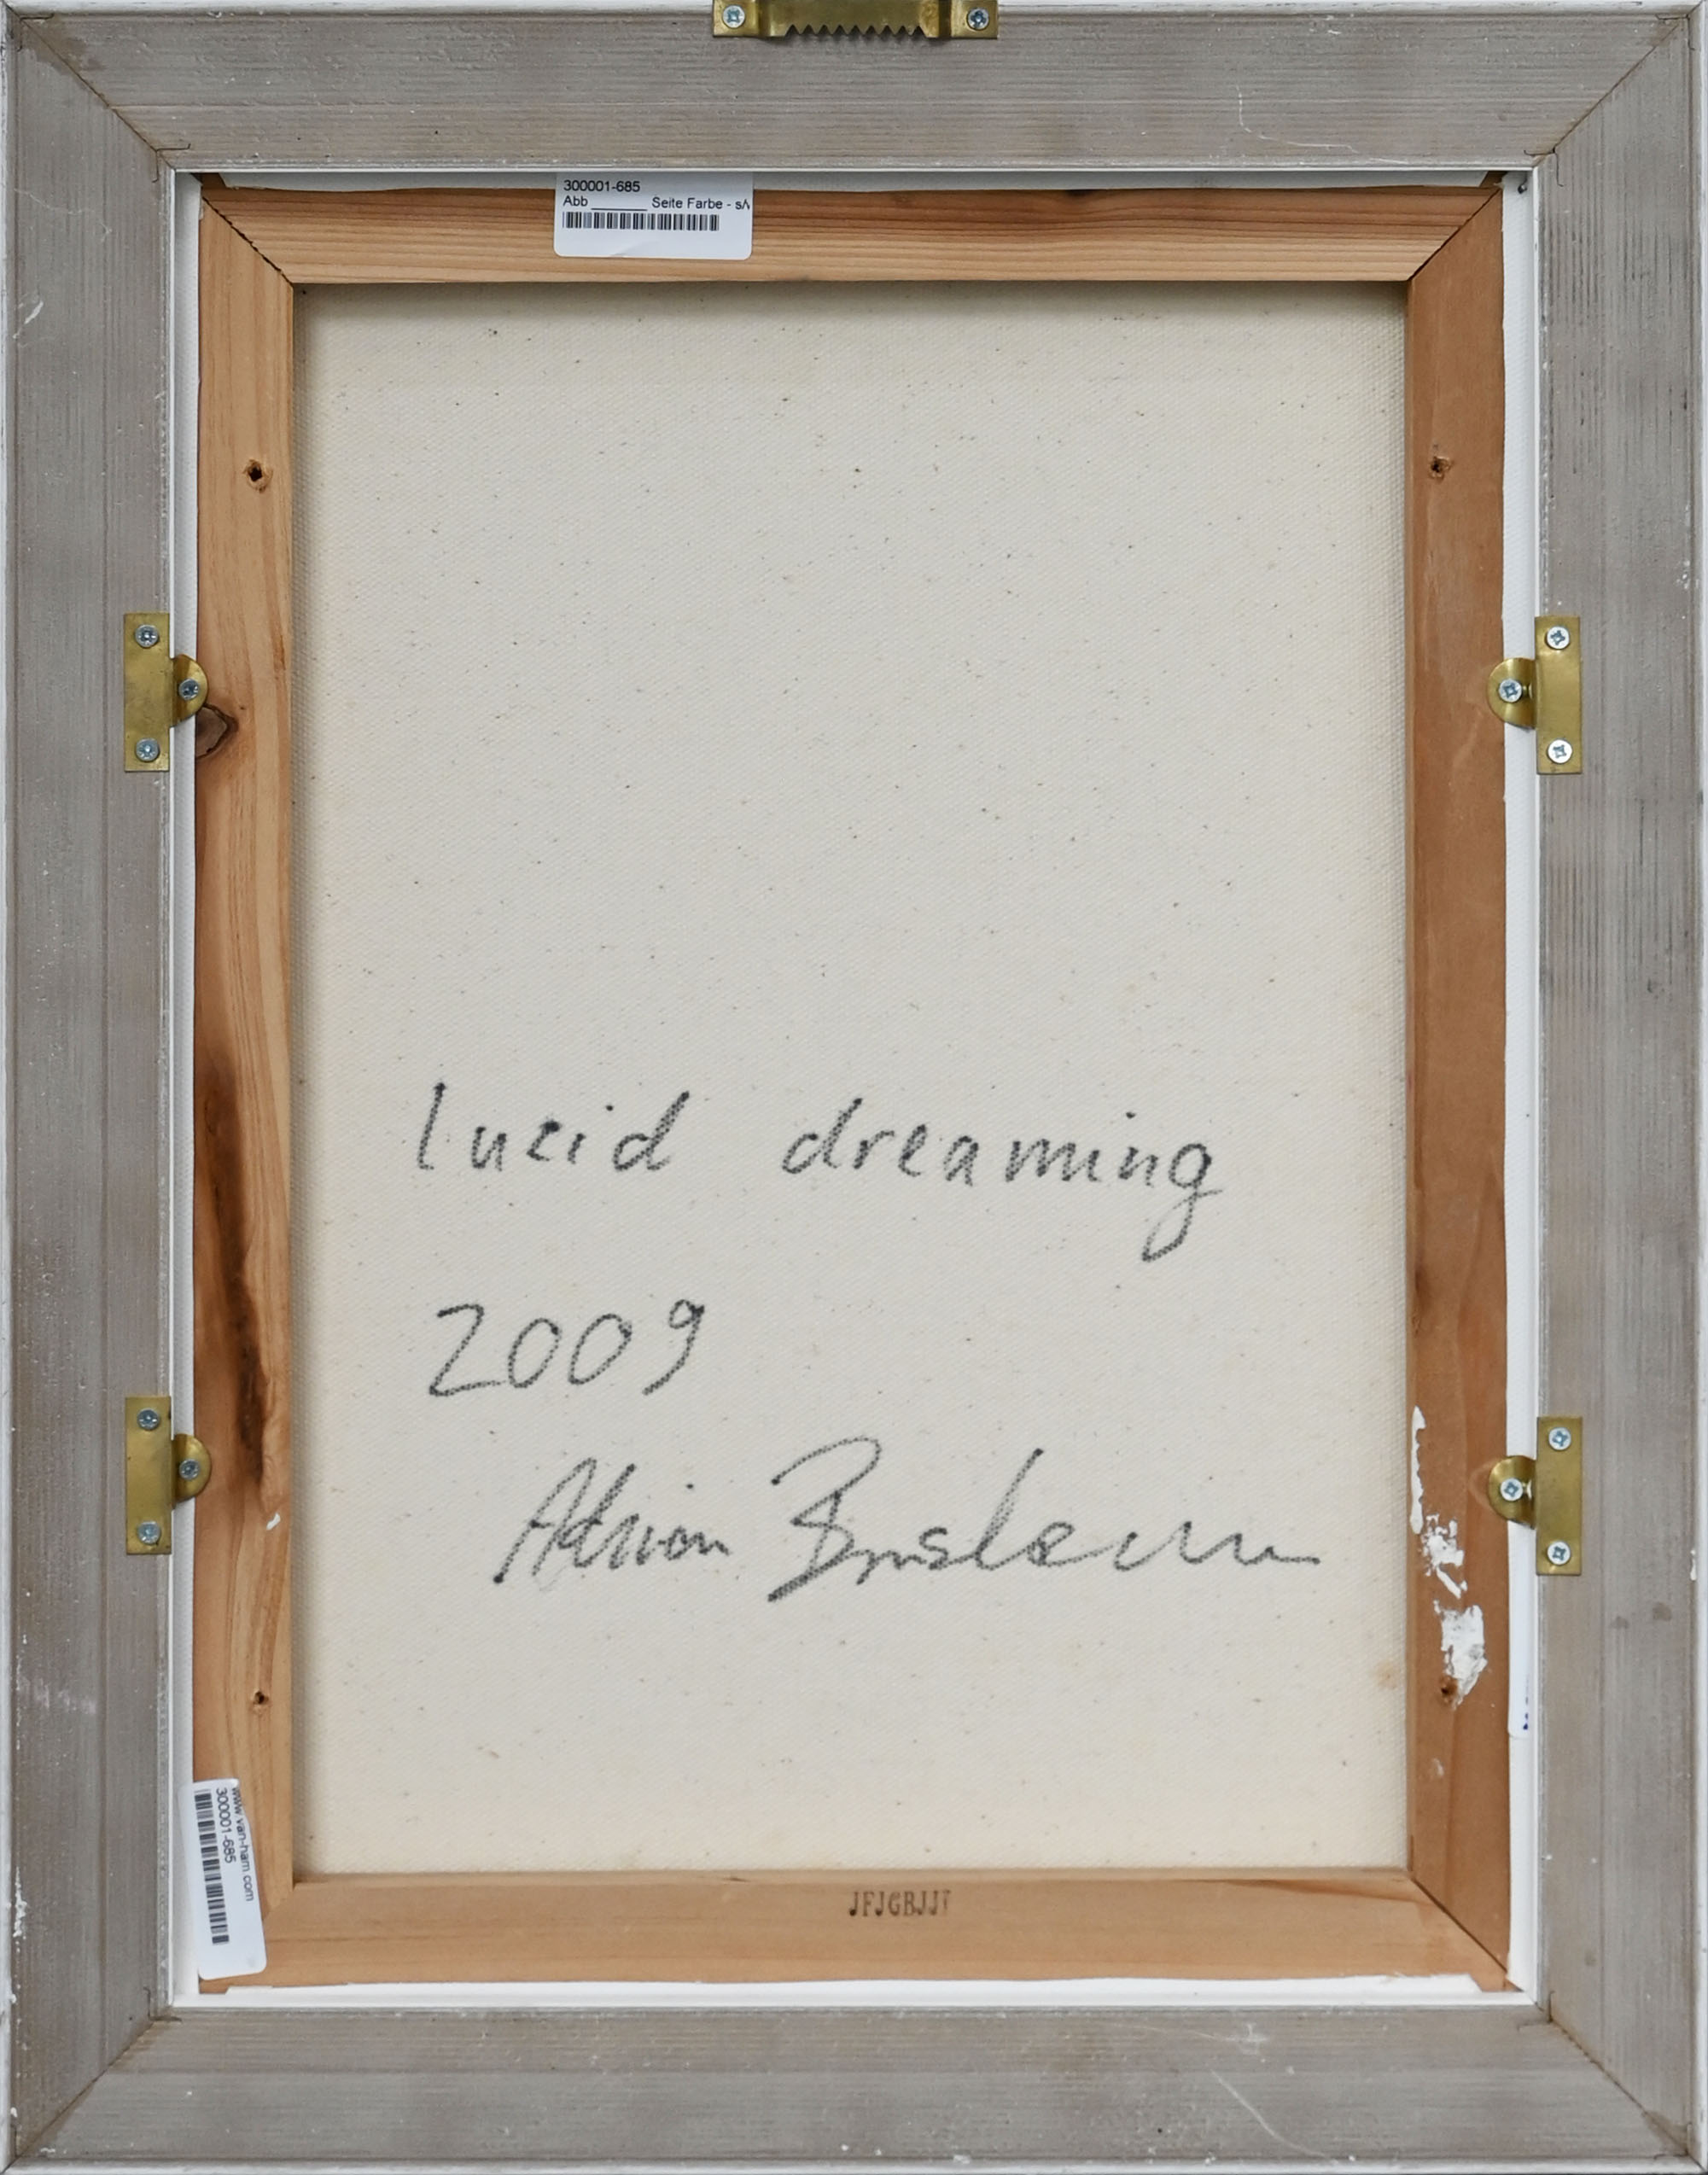 300001-685
Abb ________ Seite Farbe - s/
lucid dreaming
2009
Adrian
www.van-ham.com
300001-685
JFJGBJJ